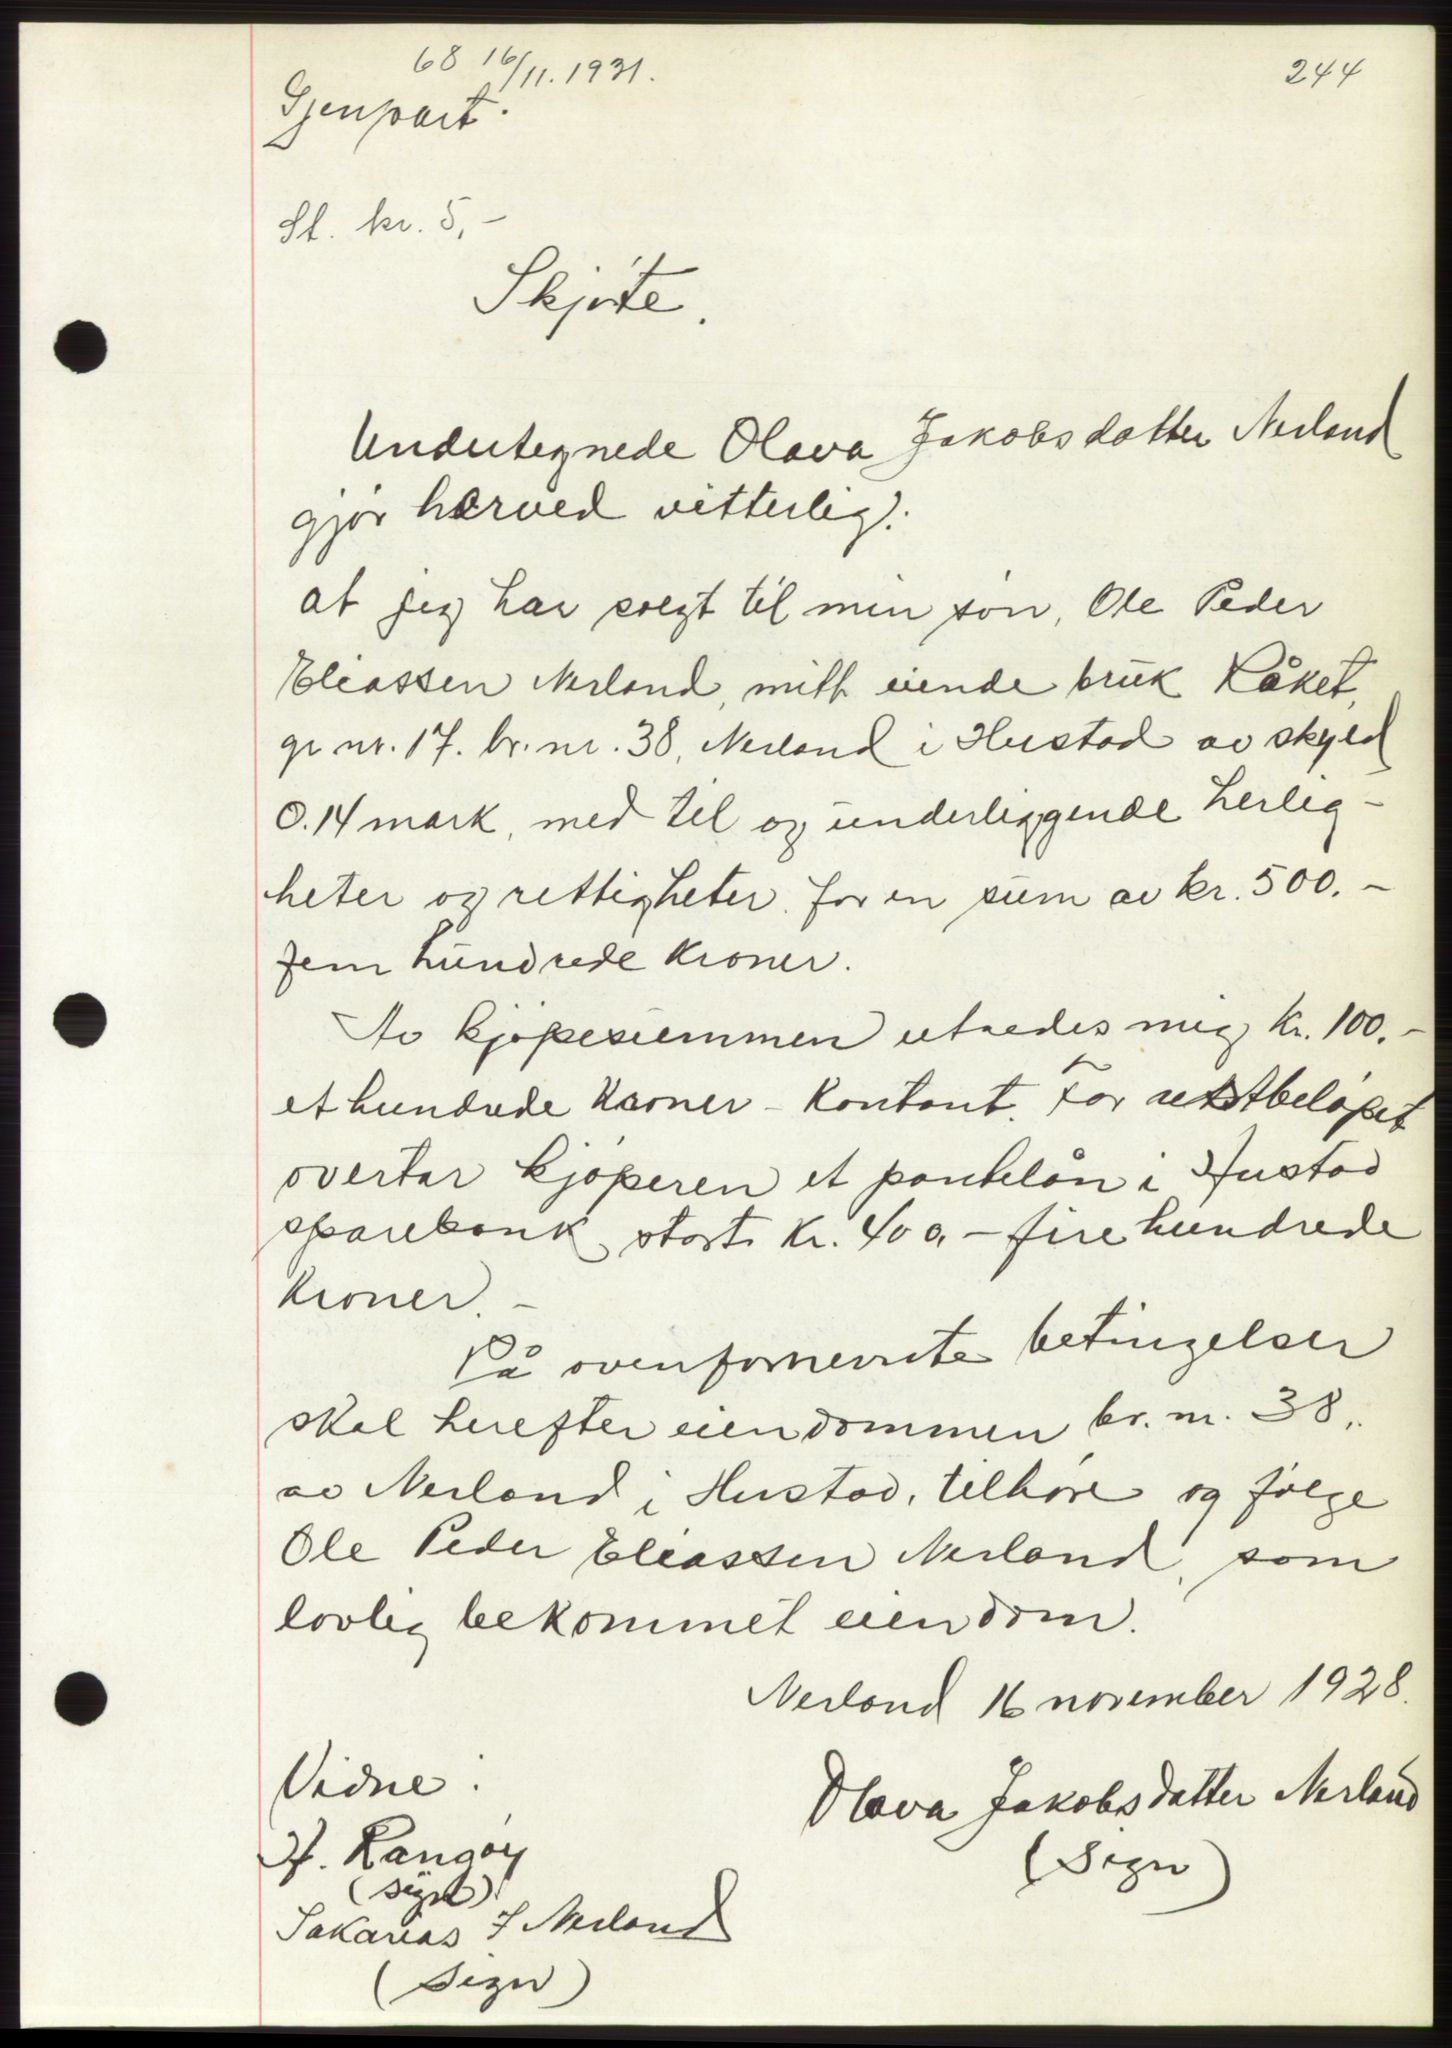 68 16/11. 1931.
244
Gjenpart.
St. kr. 5,-
Skjöte.
Undertegnede Olava Jakobsdatter Nerland
gjör herved vitterlig:
at jeg har solgt til min sön, Ole Peder
Eliassen Nerland, mitt eiende bruk Råket,
gr nr. 17. br. nr. 38, Nerland i Hustad av skyld
0.14 mark, med til og underliggende herlig-
heter og rettigheter for en sum av kr. 500.-
fem hundrede kroner.
Av kjöpesummen utredes mig kr. 100.-
et hundrede kroner - kontant. For restbelöpet
overtar kjöperen et pantelån i Hustad
sparebank stort kr. 400,- fire hundrede
kroner.-
På ovenfornevnte betingelser
skal herefter eiendommen br. nr. 38,
av Nerland i Hustad, tilhöre og fölge
Ole Peder Eliassen Nerland, som
lovlig bekommet eiendom.
Nerland 16 november 1928.
Vidne:
Olava Jakobsdatter Nerland
(Sign)
H. Rangöy
(sign)
Sakarias J Nerland
(Sign)